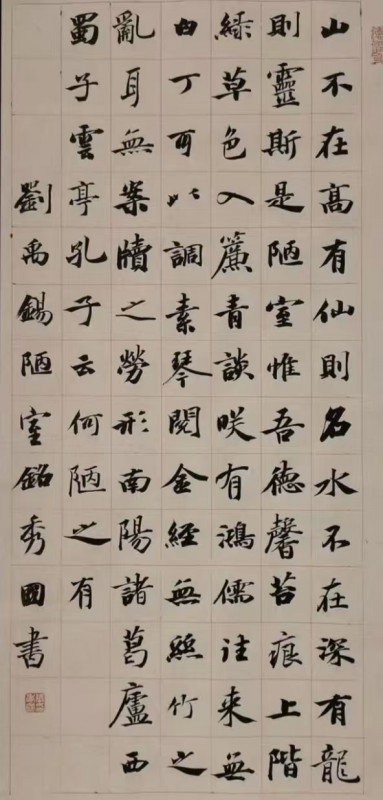 山不在高有仙則名水不在深有龍
則靈斯是陋室惟吾德馨苔痕上階
綠草色入簾青談咲有鴻儒往来無
白丁可以調素琴閱金經無絲竹之
亂耳無案牘之勞形南陽諸葛廬西
蜀子雲亭孔子云何陋之有
劉禹錫陋室銘秀國書